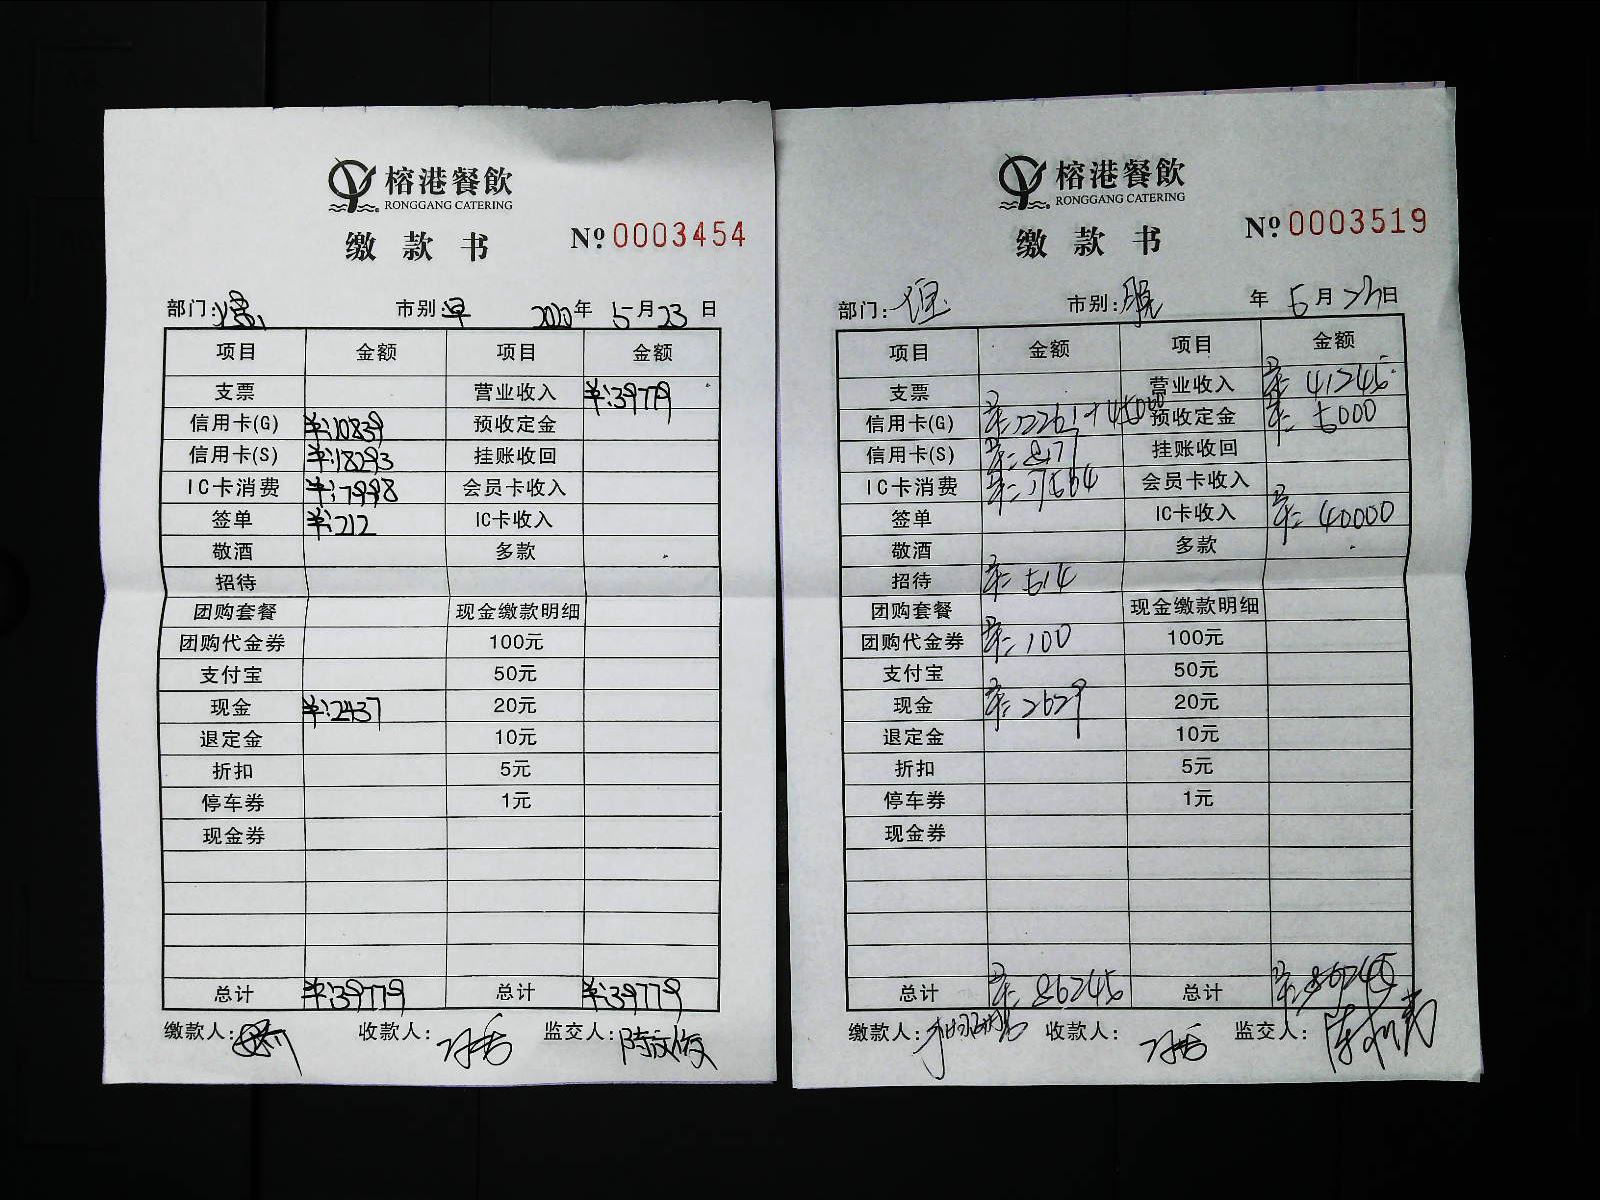 榕港餐飲
RONGGANG CATERING
缴款书 № 0003454
部门: 市别:早 2020年 5月23日
项目 金额 项目 金额
支票 营业收入 ¥:39779
信用卡(G) ¥:10839 预收定金
信用卡(S) ¥:18293 挂账收回
IC卡消费 ¥:7998 会员卡收入
签单 ¥:212 IC卡收入
敬酒 多款
招待
团购套餐 现金缴款明细
团购代金券 100元
支付宝 50元
现金 ¥:2437 20元
退定金 10元
折扣 5元
停车券 1元
现金券
总计 ¥:39779 总计 ¥:39779
缴款人: 收款人: 监交人:
榕港餐飲
RONGGANG CATERING
缴款书 № 0003519
部门: 市别:晚 年 5月23日
项目 金额 项目 金额
支票 营业收入 ¥: 41245
信用卡(G) +45000 预收定金 ¥: 5000
信用卡(S) 挂账收回
IC卡消费 会员卡收入
签单 IC卡收入 ¥: 40000
敬酒 多款
招待 ¥: 514
团购套餐 现金缴款明细
团购代金券 ¥: 100 100元
支付宝 50元
现金 ¥: 2629 20元
退定金 10元
折扣 5元
停车券 1元
现金券
总计 ¥: 86245 总计 ¥: 86245
缴款人: 收款人: 监交人: